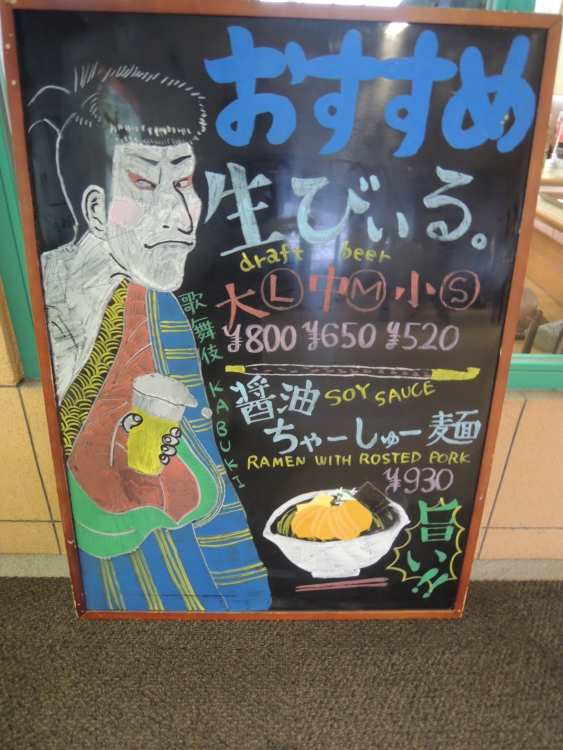 おすすめ
生びぃる。
draft beer
大Ⓛ 中Ⓜ 小Ⓢ
¥800 ¥650 ¥520
歌舞伎 KABUKI
醤油 SOY SAUCE
ちゃーしゅー麺
RAMEN WITH ROSTED PORK
¥930
旨い!!